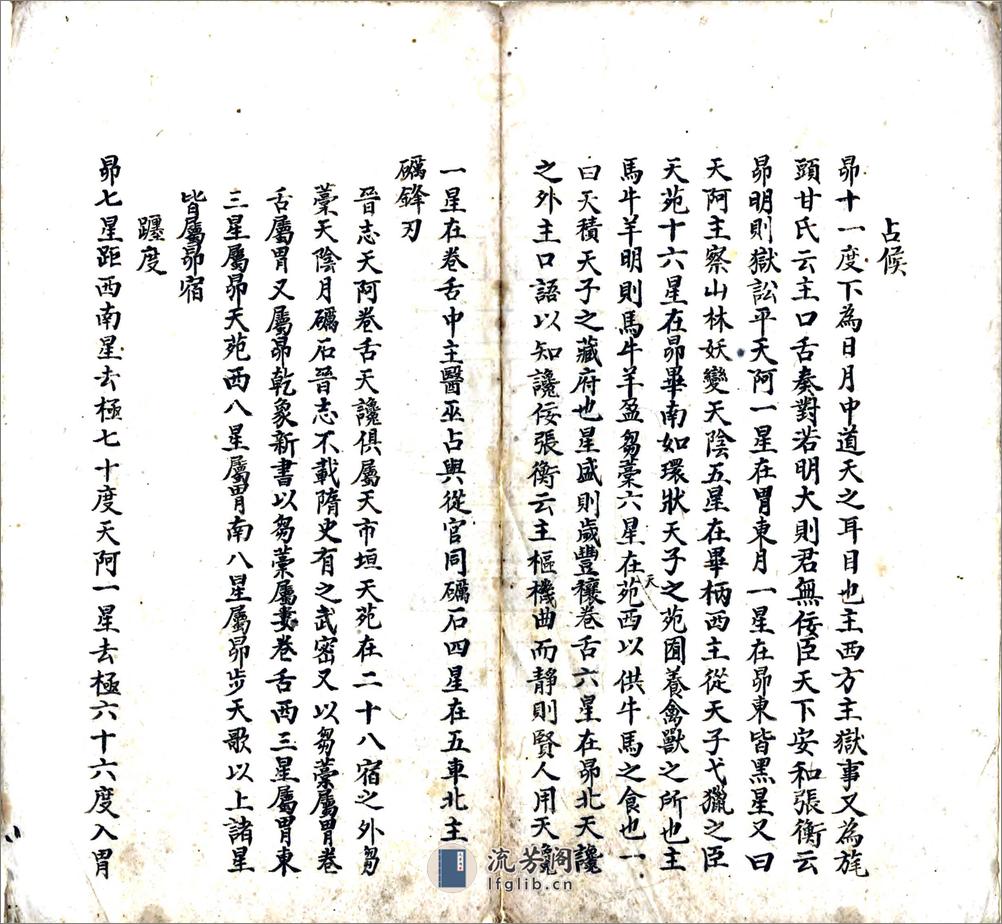 占候
昴十一度下為日月中道天之耳目也主西方主獄事又為旄
頭甘氏云主口舌奏對若明大則君無佞臣天下安和張衡云
昴明則獄訟平天阿一星在胃東月一星在昴東皆黑星又曰
天阿主察山林妖變天陰五星在畢柄西主從天子弋獵之臣
天苑十六星在昴畢南如環狀天子之苑囿養禽獸之所也主
馬牛羊明則馬牛羊盈芻藁六星在天苑西以供牛馬之食也一
曰天積天子之藏府也星盛則歲豐穰卷舌六星在昴北天讒
之外主口語以知讒佞張衡云主樞機曲而静則賢人用天讒
一星在卷舌中主醫巫占與從官同礪石四星在五車北主
礪鋒刃
晉志天阿卷舌天讒俱屬天市垣天苑在二十八宿之外芻
藁天陰月礪石晉志不載隋史有之武密又以芻藁屬胃卷
舌屬胃又屬昴乾象新書以芻藁屬婁卷舌西三星屬胃東
三星屬昴天苑西八星屬胃南八星屬昴步天歌以上諸星
皆屬昴宿
躔度
昴七星距西南星去極七十度天阿一星去極六十六度入胃
流芳閣
lfglib.cn